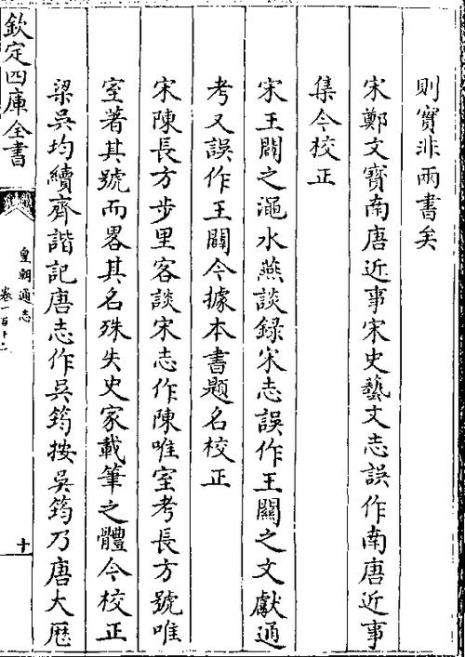 則實非兩書矣
宋鄭文寶南唐近事宋史藝文志誤作南唐近事
集今校正
宋王闢之澠水燕談録宋志誤作王關之文獻通
考又誤作王闢今據本書題名校正
宋陳長方步里客談宋志作陳唯室考長方號唯
室著其號而畧其名殊失史家載筆之體今校正
梁吳均續齊諧記唐志作吳筠按吳筠乃唐大厯
欽定四庫全書
皇朝通志
卷一百十二
十